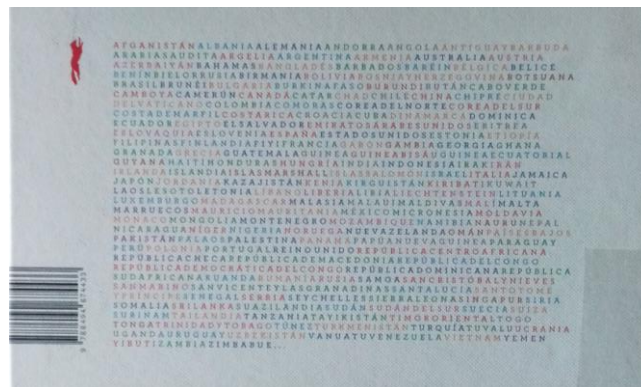 AFGANISTÁNALBANIAALEMANIAANDORRAANGOLAANTIGUAYBARBUDA
ARABIASAUDITAARGELIAARGENTINAARMENIAAUSTRALIAAUSTRIA
AZERBAIYÁNBAHAMASBANGLADÉSBARBADOSBARÉINBÉLGICABELICE
BENÍNBIELORRUSIABIRMANIABOLIVIABOSNIAYHERZEGOVINABOTSUANA
BRASILBRUNÉIBULGARIABURKINAFASOBURUNDIBUTÁNCABOVERDE
CAMBOYACAMERÚNCANADÁCATARCHADCHILECHINACHIPRECIUDAD
DELVATICANOCOLOMBIACOMORASCOREADELNORTECOREADELSUR
COSTADEMARFILCOSTARICACROACIACUBADINAMARCADOMINICA
ECUADOREGIPTOELSALVADOREMIRATOSÁRABESUNIDOSERITREA
ESLOVAQUIAESLOVENIAESPAÑAESTADOSUNIDOSESTONIAETIOPÍA
FILIPINASFINLANDIAFIYIFRANCIAGABÓNGAMBIAGEORGIAGHANA
GRANADAGRECIAGUATEMALAGUINEAGUINEABISÁUGUINEAECUATORIAL
GUYANAHAITÍHONDURASHUNGRÍAINDIAINDONESIAIRAKIRÁN
IRLANDAISLANDIAISLASMARSHALLISLASSALOMÓNISRAELITALIAJAMAICA
JAPÓNJORDANIAKAZAJISTÁNKENIAKIRGUISTÁNKIRIBATIKUWAIT
LAOSLESOTOLETONIALÍBANOLIBERIALIBIALIECHTENSTEINLITUANIA
LUXEMBURGOMADAGASCARMALASIAMALAUIMALDIVASMALÍMALTA
MARRUECOSMAURICIOMAURITANIAMÉXICOMICRONESIAMOLDAVIA
MÓNACOMONGOLIAMONTENEGROMOZAMBIQUENAMIBIANAURUNEPAL
NICARAGUANÍGERNIGERIANORUEGANUEVAZELANDAOMÁNPAÍSESBAJOS
PAKISTÁNPALAOSPALESTINAPANAMÁPAPUANUEVAGUINEAPARAGUAY
PERÚPOLONIAPORTUGALREINOUNIDOREPÚBLICACENTROAFRICANA
REPÚBLICACHECAREPÚBLICADEMACEDONIAREPÚBLICADELCONGO
REPÚBLICADEMOCRÁTICADELCONGOREPÚBLICADOMINICANAREPÚBLICA
SUDAFRICANARUANDARUMANÍARUSIASAMOASANCRISTÓBALYNIEVES
SANMARINOSANVICENTEYLASGRANADINASSANTALUCÍASANTOTOMÉ
YPRÍNCIPESENEGALSERBIASEYCHELLESSIERRALEONASINGAPURSIRIA
SOMALIASRILANKASUAZILANDIASUDÁNSUDÁNDELSURSUECIASUIZA
SURINAMTAILANDIATANZANIATAYIKISTÁNTIMORORIENTALTOGO
TONGATRINIDADYTOBAGOTÚNEZTURKMENISTÁNTURQUÍATUVALUUCRANIA
UGANDAURUGUAYUZBEKISTÁNVANUATUVENEZUELAVIETNAMYEMEN
YIBUTIZAMBIAZIMBABUE...